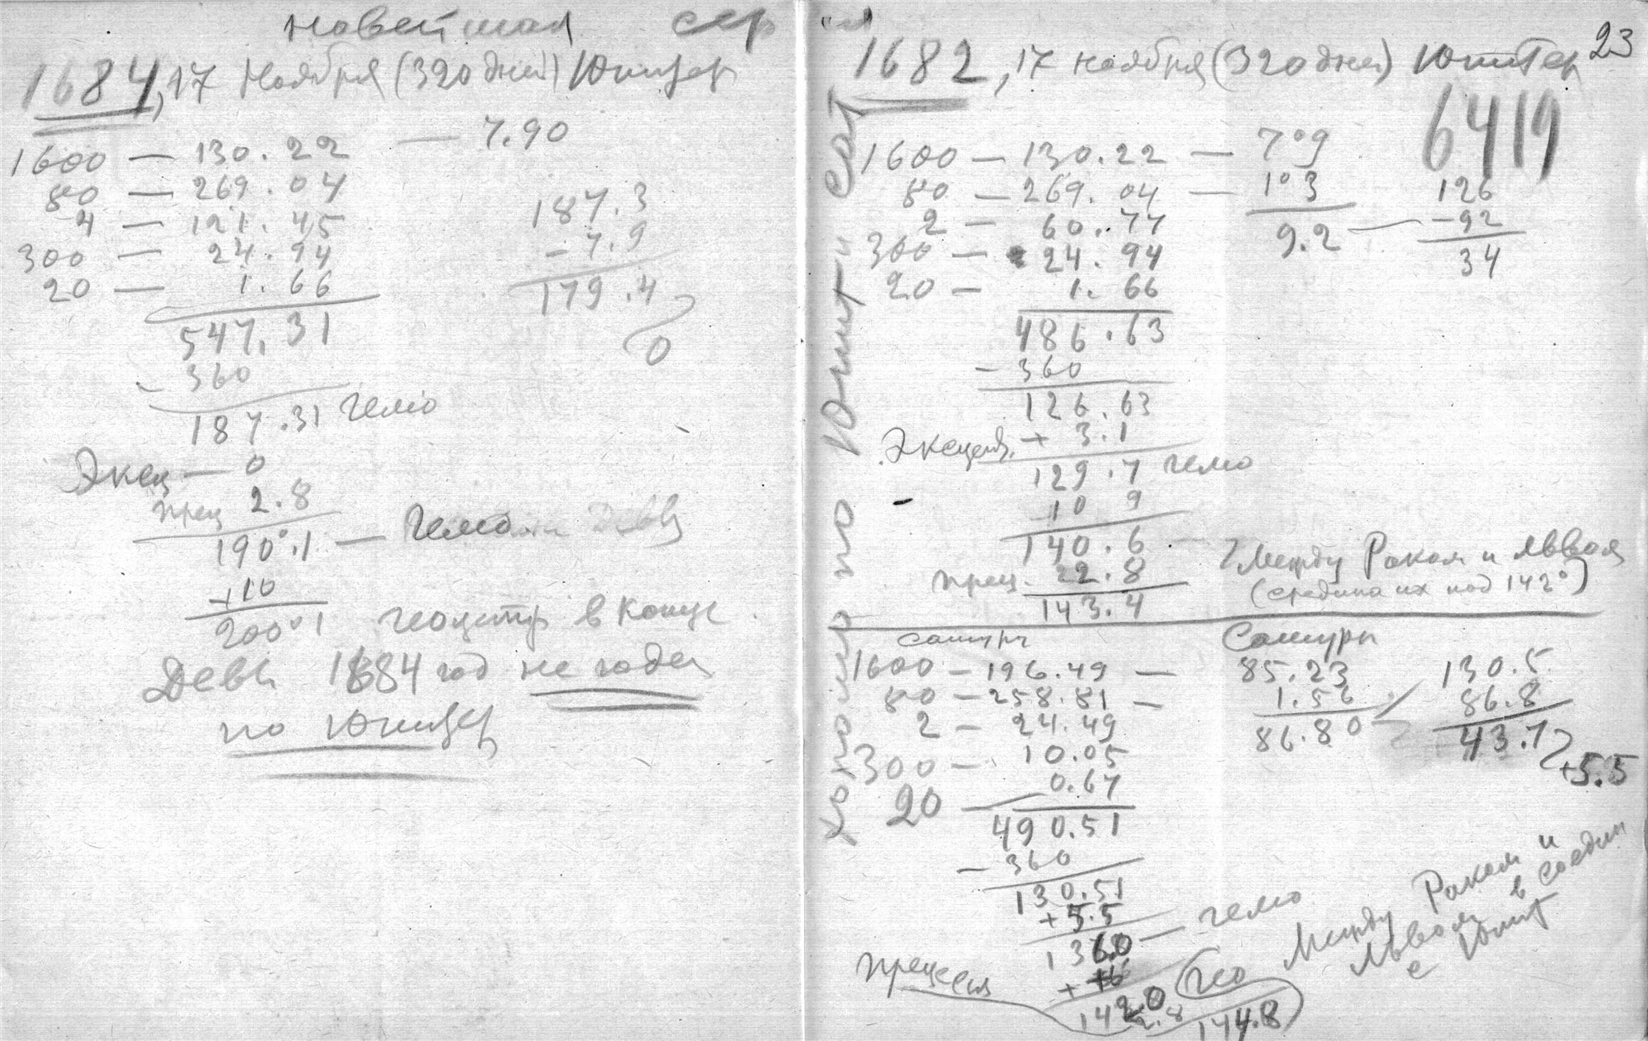 новейшая сер
1684, 17 Ноября (320 дней) Юпитер
1600 — 130.22 — 7.90
80 — 269.04
4 — 121.45
300 — 24.94
20 — 1.66
547.31
- 360
187.31 гелио
187.3
- 7.9
179.4
0
Эксц — 0
прец 2.8
190°.1 — Гелио Девы
+10
200°.1 геоцентр в конце
Девы 1684 год не годен
по Юпитер
23
1682, 17 ноября (320 дней) Юпитер
6419
1600 — 130.22 — 7°9
80 — 269.04 — 1°3
2 — 60.77
300 — 24.94
20 — 1.66
9.2 — 126
- 92
34
486.63
- 360
126.63
Эксцент. + 3.1
129.7 гелио
10 9
140.6
прец. 2.8
143.4
Между Раком и Львом
(средина их под 142°)
Хорошо по Юпит и Сат
сатурн
1600 — 196.49 —
80 — 258.81 —
2 — 24.49
300 — 10.05
20 — 0.67
490.51
- 360
130.51
+ 5.5
136.0 — гелио
+ 16
142.0
2.8
144.8
Прецессия
Гео
Сатурн
85.23
1.56
86.80
130.5
86.8
43.7
+5.5
Между Раком и
Львом в соедин
с Юпит